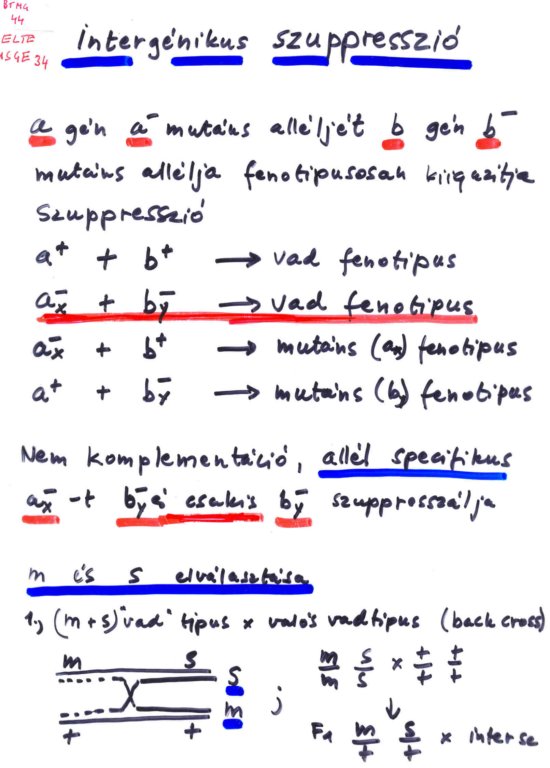 BTMG
44
ELTE
34
intergénikus szuppresszió
a gén a⁻ mutáns alléljét b gén b⁻
mutáns allélja fenotipusosan kiigazitja
Szuppresszió
a⁺ + b⁺ → vad fenotipus
aₓ⁻ + b_y⁻ → vad fenotipus
aₓ⁻ + b⁺ → mutáns (aₓ) fenotipus
a⁺ + b_y⁻ → mutáns (b_y) fenotipus
Nem komplementáció, allél specifikus
aₓ⁻ -t b_y⁻ és csakis b_y⁻ szuppresszálja
m és s elválasztása
1., (m+s) "vad" tipus × valós vadtipus (back cross)
m s s m/m s/s × +/+ +/+
+ + m ; ↓
F₁ m/+ s/+ × inter se